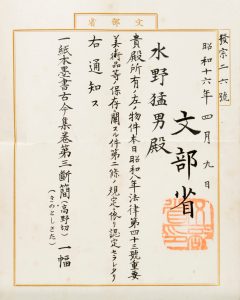 文部省
發宗二六號
昭和十六年四月九日
文部省
水野猛男殿
貴殿所有ノ左ノ物件本日昭和八年法律第四十三號重要
美術品等保存ニ關スル件第二條ノ規定ニ依リ認定セラレタリ
右通知ス
一紙本墨書古今集卷第三斷簡(高野切)一幅
(きのとしさだ)